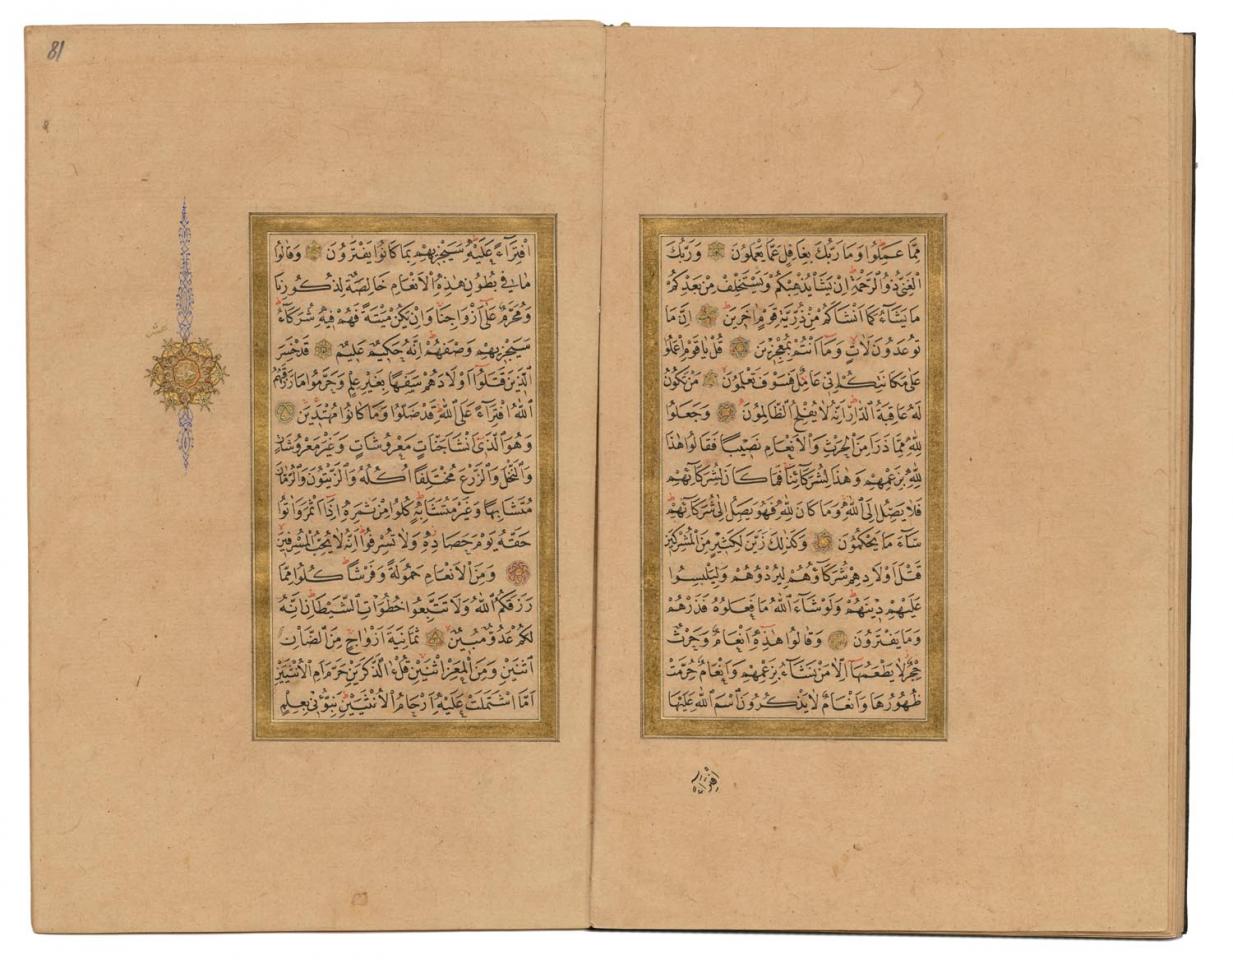 مِمَّا عَمِلُوا وَمَا رَبُّكَ بِغَافِلٍ عَمَّا يَعْمَلُونَ وَرَبُّكَ
الْغَنِيُّ ذُو الرَّحْمَةِ اِنْ يَشَأْ يُذْهِبْكُمْ وَيَسْتَخْلِفْ مِنْ بَعْدِكُمْ
مَا يَشَاءُ كَمَا اَنْشَاَكُمْ مِنْ ذُرِّيَّةِ قَوْمٍ اٰخَرِينَ اِنَّ مَا
تُوعَدُونَ لَاٰتٍ وَمَا اَنْتُمْ بِمُعْجِزِينَ قُلْ يَا قَوْمِ اعْمَلُوا
عَلٰى مَكَانَتِكُمْ اِنِّي عَامِلٌ فَسَوْفَ تَعْلَمُونَ مَنْ تَكُونُ
لَهُ عَاقِبَةُ الدَّارِ اِنَّهُ لَا يُفْلِحُ الظَّالِمُونَ وَجَعَلُوا
لِلّٰهِ مِمَّا ذَرَاَ مِنَ الْحَرْثِ وَالْاَنْعَامِ نَصِيبًا فَقَالُوا هٰذَا
لِلّٰهِ بِزَعْمِهِمْ وَهٰذَا لِشُرَكَائِنَا فَمَا كَانَ لِشُرَكَائِهِمْ
فَلَا يَصِلُ اِلَى اللّٰهِ وَمَا كَانَ لِلّٰهِ فَهُوَ يَصِلُ اِلٰى شُرَكَائِهِمْ
سَاءَ مَا يَحْكُمُونَ وَكَذٰلِكَ زَيَّنَ لِكَثِيرٍ مِنَ الْمُشْرِكِينَ
قَتْلَ اَوْلَادِهِمْ شُرَكَاؤُهُمْ لِيُرْدُوهُمْ وَلِيَلْبِسُوا
عَلَيْهِمْ دِينَهُمْ وَلَوْ شَاءَ اللّٰهُ مَا فَعَلُوهُ فَذَرْهُمْ
وَمَا يَفْتَرُونَ وَقَالُوا هٰذِهِ اَنْعَامٌ وَحَرْثٌ
حِجْرٌ لَا يَطْعَمُهَا اِلَّا مَنْ نَشَاءُ بِزَعْمِهِمْ وَاَنْعَامٌ حُرِّمَتْ
ظُهُورُهَا وَاَنْعَامٌ لَا يَذْكُرُونَ اسْمَ اللّٰهِ عَلَيْهَا
افْتِرَاءً
81
افْتِرَاءً عَلَيْهِ سَيَجْزِيهِمْ بِمَا كَانُوا يَفْتَرُونَ وَقَالُوا
مَا فِي بُطُونِ هٰذِهِ الْاَنْعَامِ خَالِصَةٌ لِذُكُورِنَا
وَمُحَرَّمٌ عَلٰى اَزْوَاجِنَا وَاِنْ يَكُنْ مَيْتَةً فَهُمْ فِيهِ شُرَكَاءُ
سَيَجْزِيهِمْ وَصْفَهُمْ اِنَّهُ حَكِيمٌ عَلِيمٌ قَدْ خَسِرَ
الَّذِينَ قَتَلُوا اَوْلَادَهُمْ سَفَهًا بِغَيْرِ عِلْمٍ وَحَرَّمُوا مَا رَزَقَهُمُ
اللّٰهُ افْتِرَاءً عَلَى اللّٰهِ قَدْ ضَلُّوا وَمَا كَانُوا مُهْتَدِينَ
وَهُوَ الَّذِي اَنْشَاَ جَنَّاتٍ مَعْرُوشَاتٍ وَغَيْرَ مَعْرُوشَاتٍ
وَالنَّخْلَ وَالزَّرْعَ مُخْتَلِفًا اُكُلُهُ وَالزَّيْتُونَ وَالرُّمَّانَ
مُتَشَابِهًا وَغَيْرَ مُتَشَابِهٍ كُلُوا مِنْ ثَمَرِهِ اِذَا اَثْمَرَ وَاٰتُوا
حَقَّهُ يَوْمَ حَصَادِهِ وَلَا تُسْرِفُوا اِنَّهُ لَا يُحِبُّ الْمُسْرِفِينَ
وَمِنَ الْاَنْعَامِ حَمُولَةً وَفَرْشًا كُلُوا مِمَّا
رَزَقَكُمُ اللّٰهُ وَلَا تَتَّبِعُوا خُطُوَاتِ الشَّيْطَانِ اِنَّهُ
لَكُمْ عَدُوٌّ مُبِينٌ ثَمَانِيَةَ اَزْوَاجٍ مِنَ الضَّاْنِ
اثْنَيْنِ وَمِنَ الْمَعْزِ اثْنَيْنِ قُلْ ءٰالذَّكَرَيْنِ حَرَّمَ اَمِ الْاُنْثَيَيْنِ
اَمَّا اشْتَمَلَتْ عَلَيْهِ اَرْحَامُ الْاُنْثَيَيْنِ نَبِّؤُنِي بِعِلْمٍ
عشر